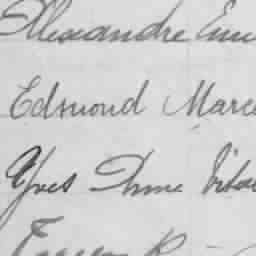 Alexandre Em
Edmond Marce
Yves Anne Vital